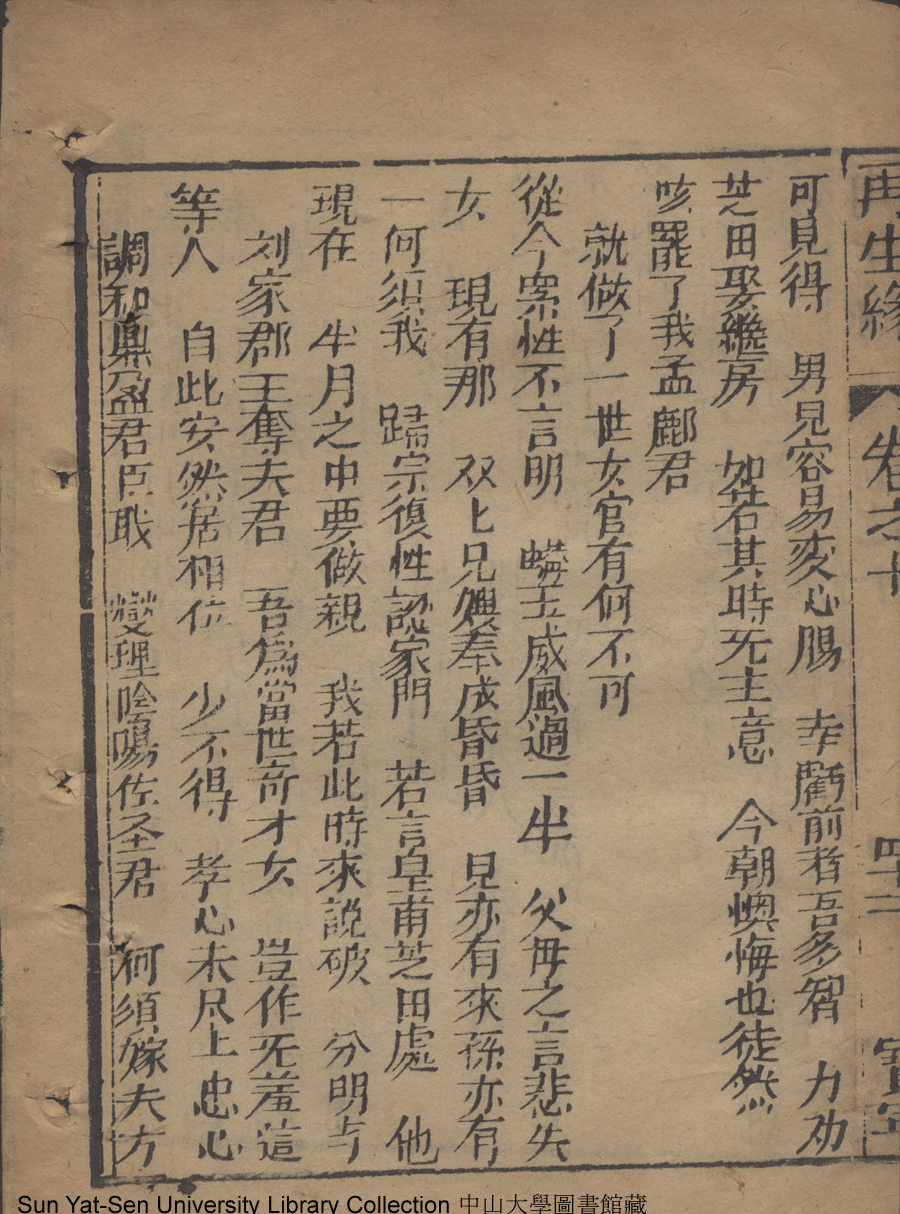 再生緣 卷之十 四十二 寶寧
可見得 男兒容易变心腸 幸虧前者吾多智 力劝
芝田娶継房 如若其時旡主意 今朝懊悔也徒然
咳罷了我孟郦君
就做了一世女官有何不可
從今索性不言明 蟒玉威風過一生 父母之言悲失
女 現有那 双〻兄嫂奉成昏昏 見亦有來孫亦有
一何須我 歸宗復性認家門 若言皇甫芝田處 他
現在 半月之中要做親 我若此時來説破 分明与
刘家郡王奪夫君 吾爲當世奇才女 豈作旡羞這
等人 自此安然居相位 少不得 孝心未尽上忠心
調和鼎鼐君臣戢 爕理陰陽佐圣君 何須嫁夫方
Sun Yat-Sen University Library Collection 中山大學圖書館藏